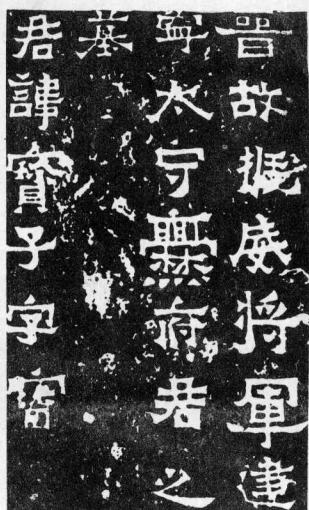 晋故振威將軍建
寧太守爨府君之
墓
君諱寶子字寶